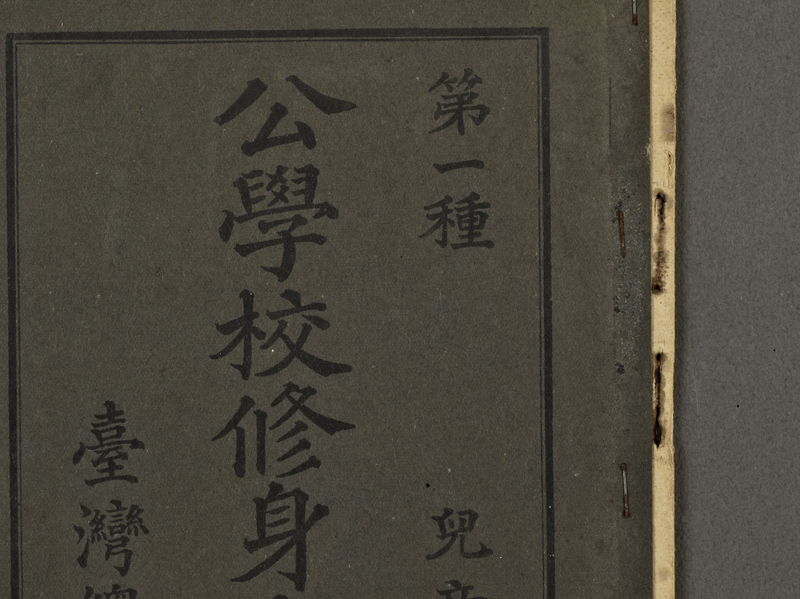 第一種 兒
公學校修身
臺灣